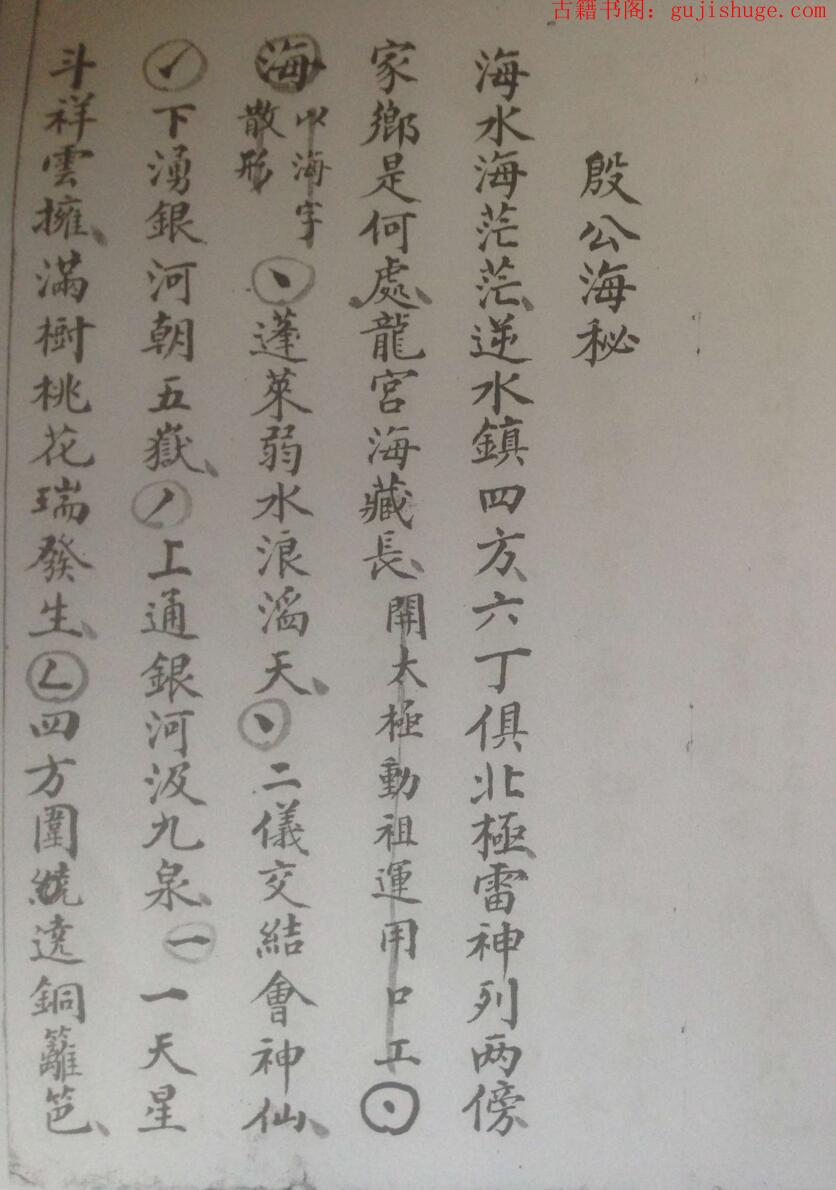 古籍书阁：gujishuge.com
殷公海秘
海水海茫茫、逆水鎮四方、六丁俱北極、雷神列两傍
家鄉是何處、龍宮海藏長、開太極動祖運用口工㇔
海 以海字散形 ㇔蓬萊弱水浪滔天、㇔二儀交結會神仙、
㇀下湧銀河朝五嶽、㇒上通銀河汲九泉、一一天星
斗祥雲擁、滿樹桃花瑞發生、𠃊四方圍繞遶銅籬笆、